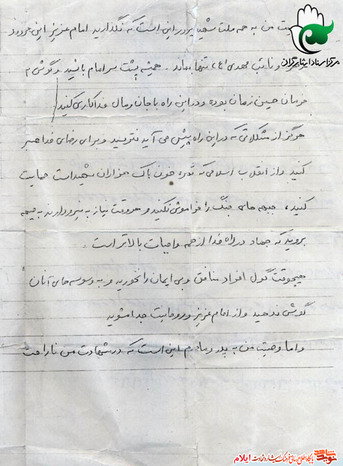 مرکز اسناد ایثارگران
وصیت من به همه ملت شهید پرور این است که نگذارید امام عزیز این
و نائب مهدی (عج) تنها بماند. همیشه پشت سر امام باشید و گوش به
فرمان حسین زمان بوده و در این راه با جان و مال فداکاری کنید
هرگز از مشکلاتی که در این راه پیش می آید نترسید و برای رضای خدا صبر
کنید و از انقلاب اسلامی که ثمره خون پاک هزاران شهید است حمایت
کنید، جبهه های جنگ را فراموش نکنید و هر وقت نیاز به نیرو دارند به جبهه
بروید که جهاد در راه خدا از همه واجبات بالاتر است
هیچوقت گول افراد منافق و بی ایمان را نخورید و به وسوسه های آنان
گوش ندهید و از امام عزیز و روحانیت جدا مشوید
و اما وصیت من به پدر و مادرم این است که در شهادت من ناراحت
ایلام